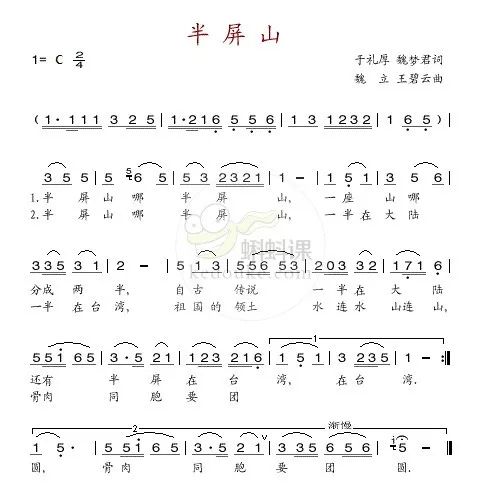 半屏山
1= C 2/4
于礼厚 魏梦君词
魏 立 王碧云曲
(1·111 3 2 5 | 1·216 5 5 5 | 1 3 1232 | 1 6 5) |
3 5 5 5 6 5 | 5 3 2321 | 1 - | 1 5 1 3 5 6 |
1.半 屏 山 哪 半 屏 山, 一 座 山 哪
2.半 屏 山 哪 半 屏 山, 一 半 在 大 陆
335 3 1 | 2 - | 5 1 3 | 556 53 | 203 32 | 171 6 |
分 成 两 半, 自 古 传说 一 半 在 大 陆
一 半 在 台 湾, 祖 国 的 领土 水 连 水 山 连 山,
蝌蚪课
551 65 | 3·5 21 | 123 2216 | 1 5 1 | 3 235 | 1 - :||
1
还有 半 屏 在 台 湾, 在 台 湾.
骨肉 同 胞 要 团
2
渐慢
1 5 | 551 65 | 3·5 2 1 | 3 35 656 | 1 5 | 1 - ||
圆, 骨肉 同 胞 要 团 圆.